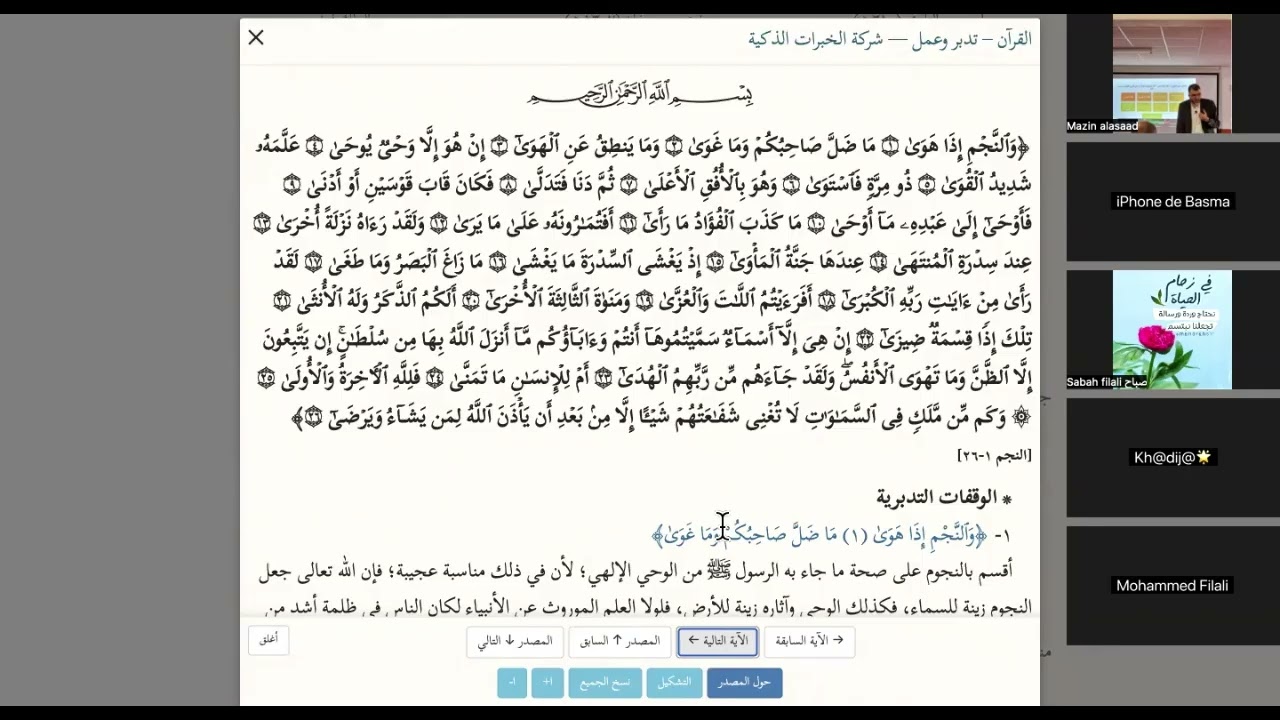 القرآن – تدبر وعمل — شركة الخبرات الذكية
بِسْمِ اللَّهِ الرَّحْمَٰنِ الرَّحِيمِ
﴿وَٱلنَّجۡمِ إِذَا هَوَىٰ ١ مَا ضَلَّ صَاحِبُكُمۡ وَمَا غَوَىٰ ٢ وَمَا يَنطِقُ عَنِ ٱلۡهَوَىٰٓ ٣ إِنۡ هُوَ إِلَّا وَحۡيٞ يُوحَىٰ ٤ عَلَّمَهُۥ
شَدِيدُ ٱلۡقُوَىٰ ٥ ذُو مِرَّةٖ فَٱسۡتَوَىٰ ٦ وَهُوَ بِٱلۡأُفُقِ ٱلۡأَعۡلَىٰ ٧ ثُمَّ دَنَا فَتَدَلَّىٰ ٨ فَكَانَ قَابَ قَوۡسَيۡنِ أَوۡ أَدۡنَىٰ ٩
فَأَوۡحَىٰٓ إِلَىٰ عَبۡدِهِۦ مَآ أَوۡحَىٰ ١٠ مَا كَذَبَ ٱلۡفُؤَادُ مَا رَأَىٰٓ ١١ أَفَتُمَٰرُونَهُۥ عَلَىٰ مَا يَرَىٰ ١٢ وَلَقَدۡ رَءَاهُ نَزۡلَةً أُخۡرَىٰ ١٣
عِندَ سِدۡرَةِ ٱلۡمُنتَهَىٰ ١٤ عِندَهَا جَنَّةُ ٱلۡمَأۡوَىٰٓ ١٥ إِذۡ يَغۡشَى ٱلسِّدۡرَةَ مَا يَغۡشَىٰ ١٦ مَا زَاغَ ٱلۡبَصَرُ وَمَا طَغَىٰ ١٧ لَقَدۡ
رَأَىٰ مِنۡ ءَايَٰتِ رَبِّهِ ٱلۡكُبۡرَىٰٓ ١٨ أَفَرَءَيۡتُمُ ٱللَّٰتَ وَٱلۡعُزَّىٰ ١٩ وَمَنَوٰةَ ٱلثَّالِثَةَ ٱلۡأُخۡرَىٰٓ ٢٠ أَلَكُمُ ٱلذَّكَرُ وَلَهُ ٱلۡأُنثَىٰ ٢١
تِلۡكَ إِذٗا قِسۡمَةٞ ضِيزَىٰٓ ٢٢ إِنۡ هِيَ إِلَّآ أَسۡمَآءٞ سَمَّيۡتُمُوهَآ أَنتُمۡ وَءَابَآؤُكُم مَّآ أَنزَلَ ٱللَّهُ بِهَا مِن سُلۡطَٰنٍۚ إِن يَتَّبِعُونَ
إِلَّا ٱلظَّنَّ وَمَا تَهۡوَى ٱلۡأَنفُسُۖ وَلَقَدۡ جَآءَهُم مِّن رَّبِّهِمُ ٱلۡهُدَىٰٓ ٢٣ أَمۡ لِلۡإِنسَٰنِ مَا تَمَنَّىٰ ٢٤ فَلِلَّهِ ٱلۡأٓخِرَةُ وَٱلۡأُولَىٰ ٢٥
۞ وَكَم مِّن مَّلَكٖ فِي ٱلسَّمَٰوَٰتِ لَا تُغۡنِي شَفَٰعَتُهُمۡ شَيۡـًٔا إِلَّا مِنۢ بَعۡدِ أَن يَأۡذَنَ ٱللَّهُ لِمَن يَشَآءُ وَيَرۡضَىٰٓ ٢٦﴾
[النجم ١-٢٦]
* الوقفات التدبرية
١- ﴿وَٱلنَّجۡمِ إِذَا هَوَىٰ (١) مَا ضَلَّ صَاحِبُكُمۡ وَمَا غَوَىٰ﴾
أقسم بالنجوم على صحة ما جاء به الرسول ﷺ من الوحي الإلهي؛ لأن في ذلك مناسبة عجيبة؛ فإن الله تعالى جعل
النجوم زينة للسماء، فكذلك الوحي وآثاره زينة للأرض، فلولا العلم الموروث عن الأنبياء لكان الناس في ظلمة أشد من
→ الآية السابقة
الآية التالية ←
المصدر ↑ السابق
المصدر ↓ التالي
أغلق
حول المصدر
التشكيل
نسخ الجميع
ا+
ا-
Mazin alasaad
iPhone de Basma
في زحام
الحياة
نحتاج وردة ورسالة
تجعلنا نبتسم
Sabah filali صباح
Kh@dij@🌟
Mohammed Filali